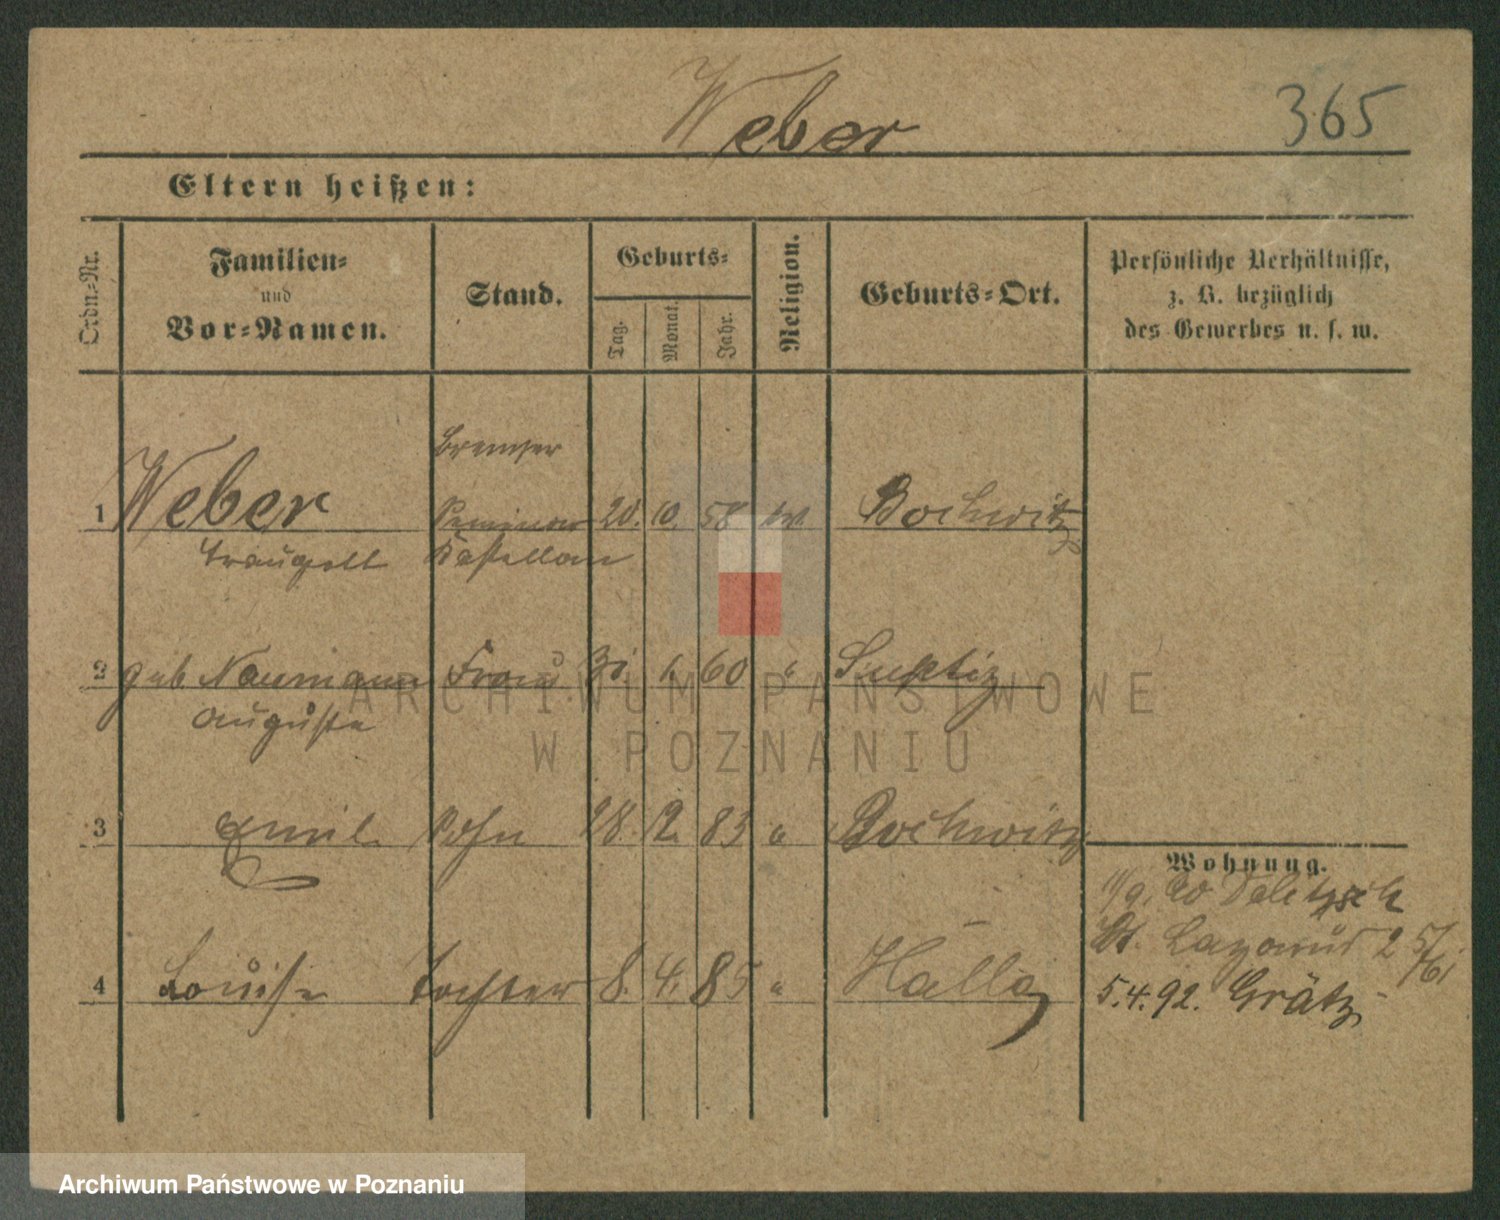 Weber
365
Eltern heißen:
Ordn.-Nr.
Familien-
und
Vor-Namen.
Stand.
Geburts-
Tag.
Monat.
Jahr.
Religion.
Geburts-Ort.
Persönliche Verhältnisse,
z. B. bezüglich
des Gewerbes u. s. w.
Bremser
1 Weber 20. 10. 58 ev. Bochwitz
Traugott Kastellan
2 geb Naumann Frau 1. 60 " Suptiz
Auguste
3 Emil Sohn 18. 12. 83 " Bochwitz
Wohnung.
Delitzsch
St. Lazarus 2
4 Louise Tochter 8. 4. 85 " Halle
5.4.92. Grätz
ARCHIWUM PAŃSTWOWE
W POZNANIU
Archiwum Państwowe w Poznaniu